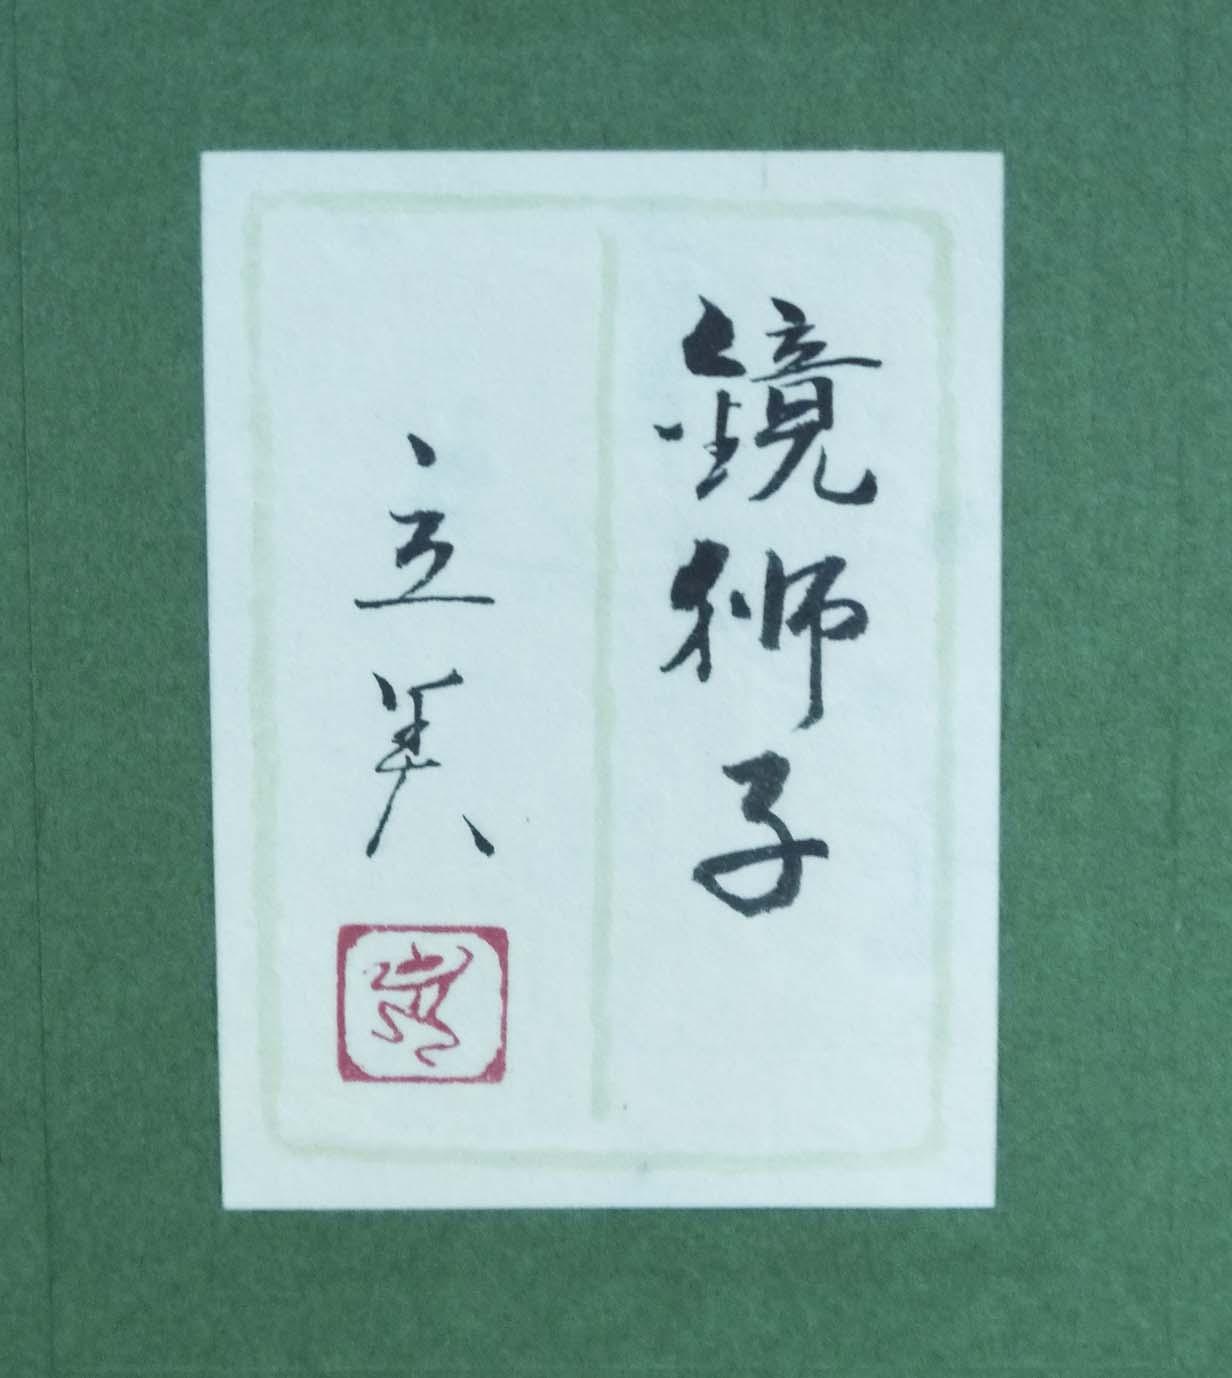 鏡獅子
立美